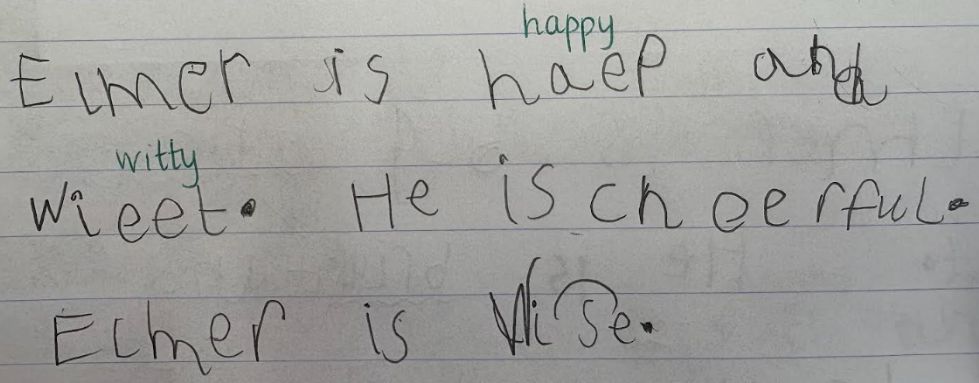 happy
Elmer is haep and
witty
wieet. He is cheerful.
Elmer is Wise.